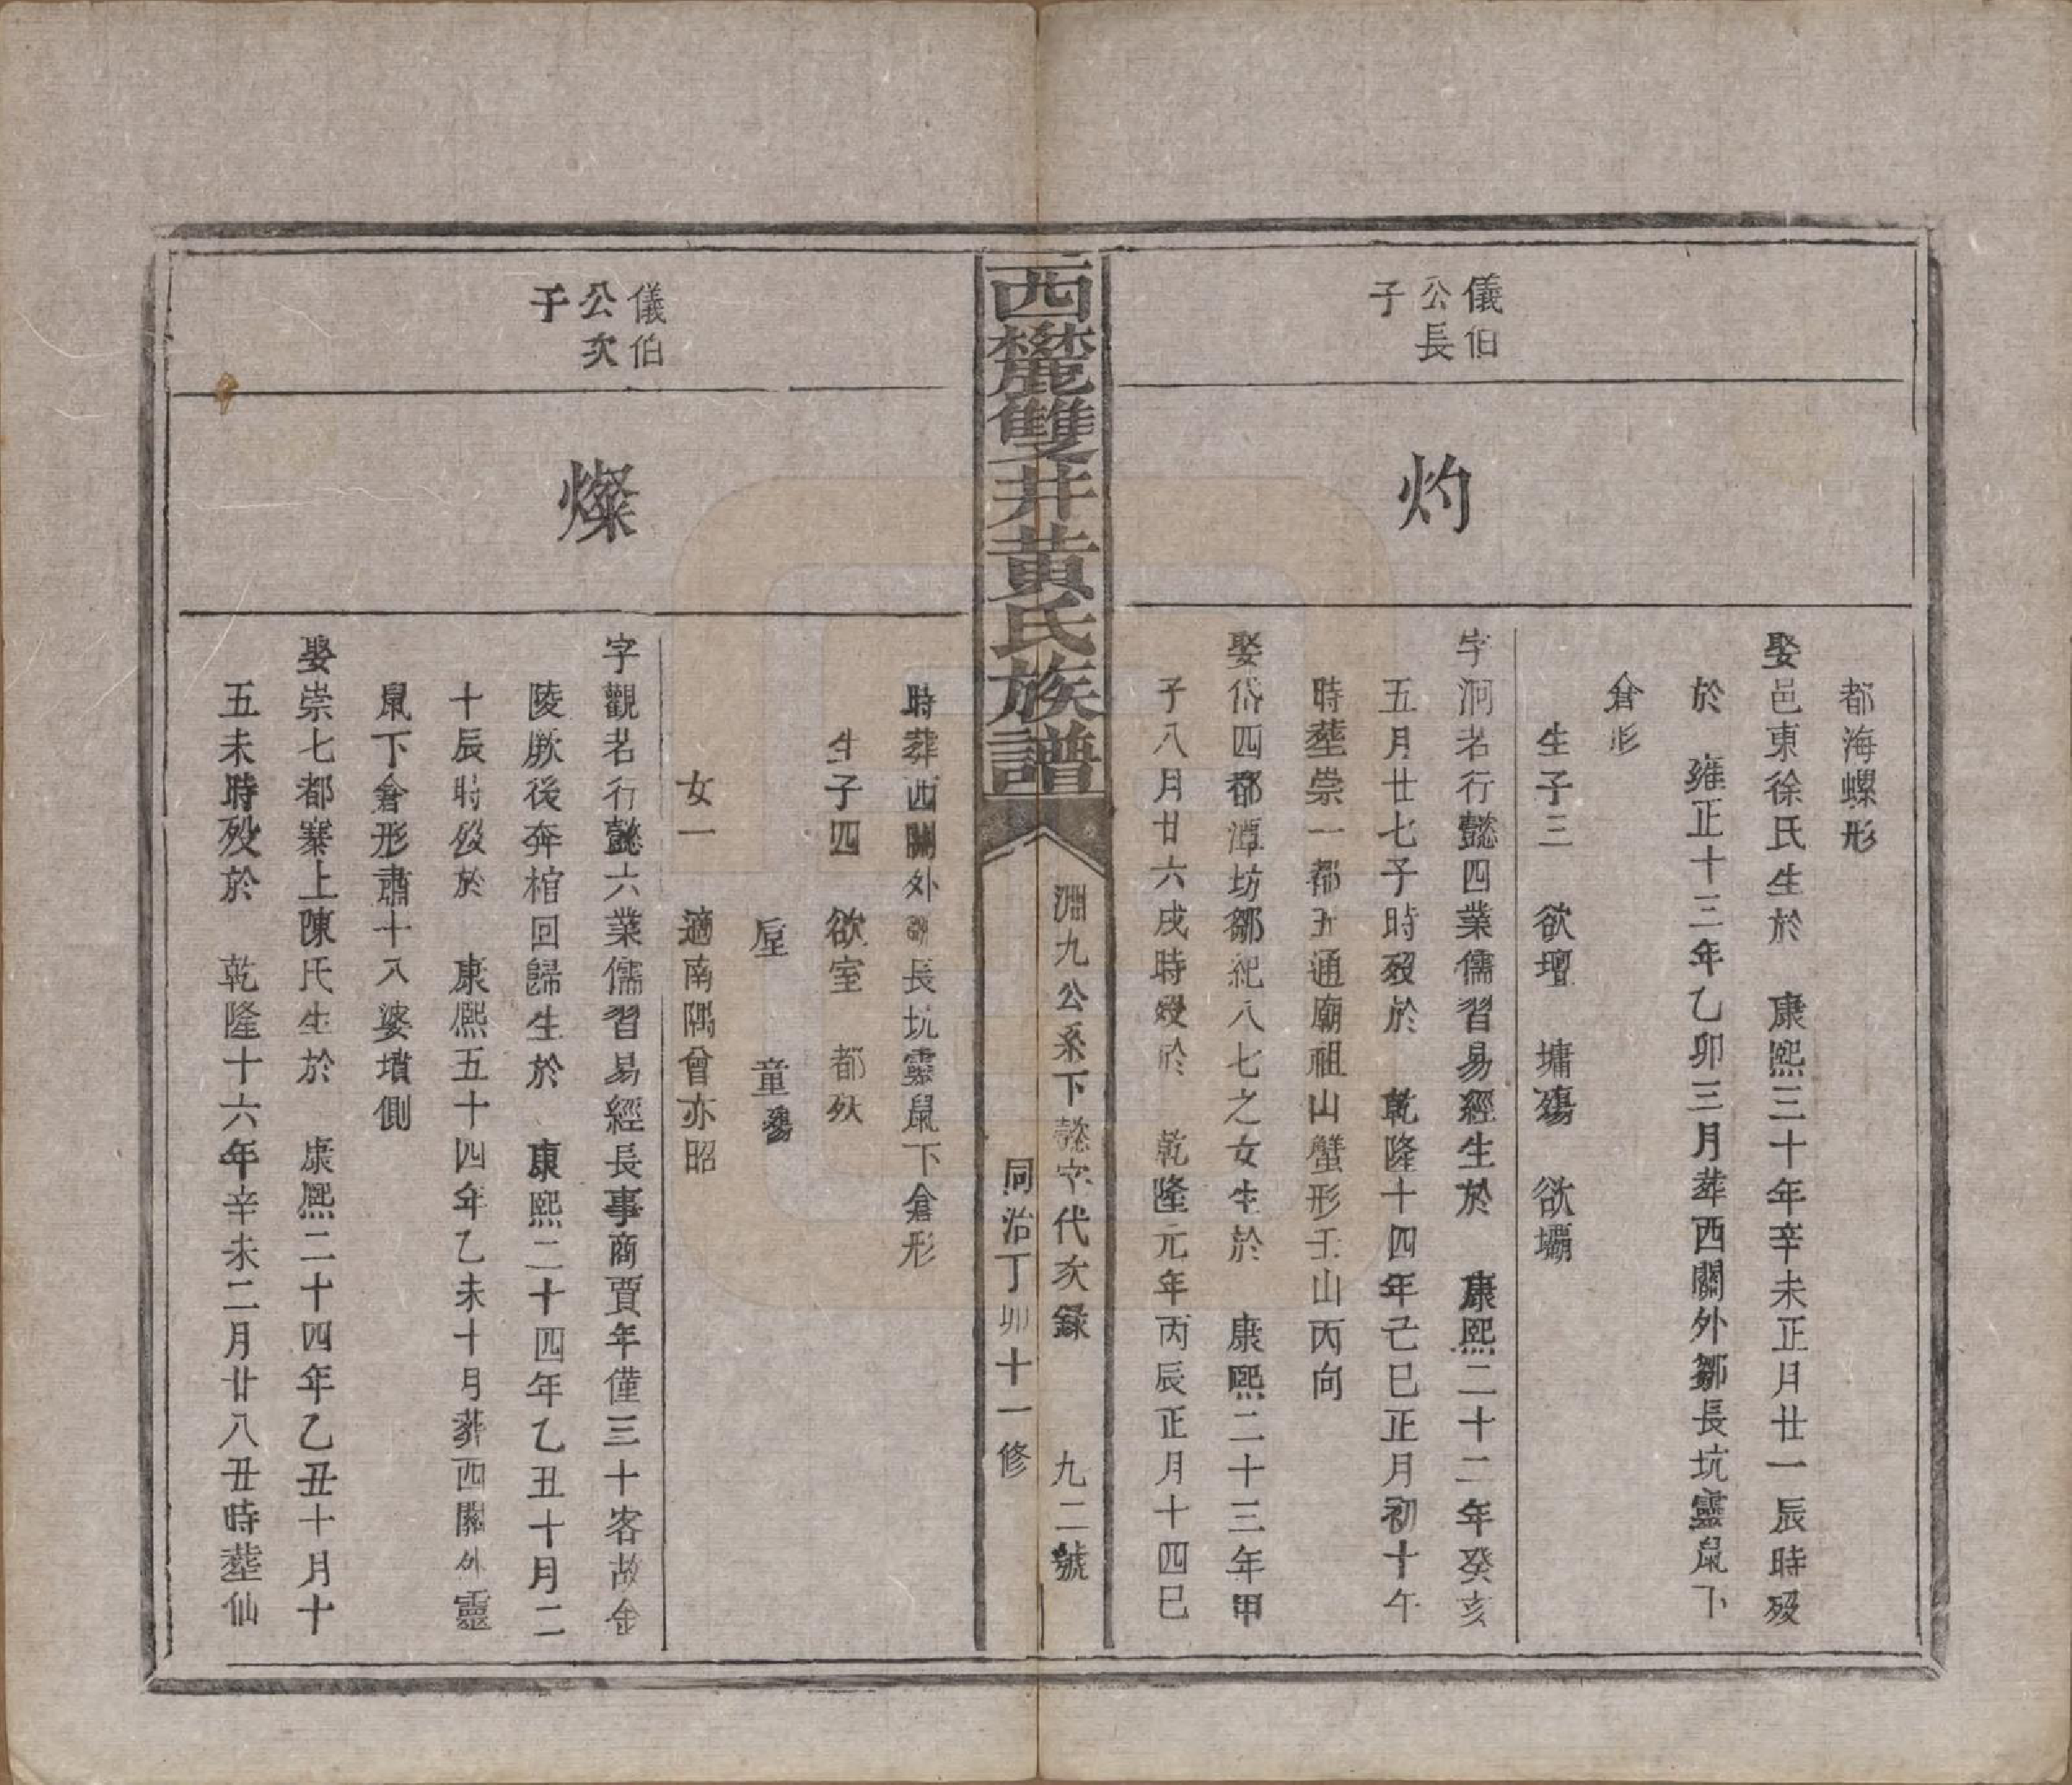 都海螺形
娶邑東徐氏生於　康熙三十年辛未正月廿一辰時歿
於　雍正十三年乙卯三月葬西關外鄒長坑靈鼠下
倉形
生子三　欲壇　墉殤　欲壩
儀伯
公長
子
灼
字泂名行懿四業儒習易經生於　康熙二十二年癸亥
五月廿七子時歿於　乾隆十四年己巳正月初十午
時塟崇一都五通廟祖山蟹形壬山丙向
娶岱四都潭坊鄒紀八七之女生於　康熙二十三年甲
子八月廿六戌時歿於　乾隆元年丙辰正月十四巳
西麓雙井黃氏族譜
淵九公系下懿字代次録　九二號
同治丁卯十一修
時葬西關外鄒長坑靈鼠下倉形
生子四　欲室　都殀
垕　童殤
女一　適南隅曾亦昭
儀伯
公次
子
燦
字觀名行懿六業儒習易經長事商賈年僅三十客故金
陵厥後奔棺回歸生於　康熙二十四年乙丑十月二
十辰時歿於　康熙五十四年乙未十月葬西關外靈
鼠下倉形肅十八婆墳側
娶崇七都寨上陳氏生於　康熙二十四年乙丑十月十
五未時歿於　乾隆十六年辛未二月廿八丑時塟仙